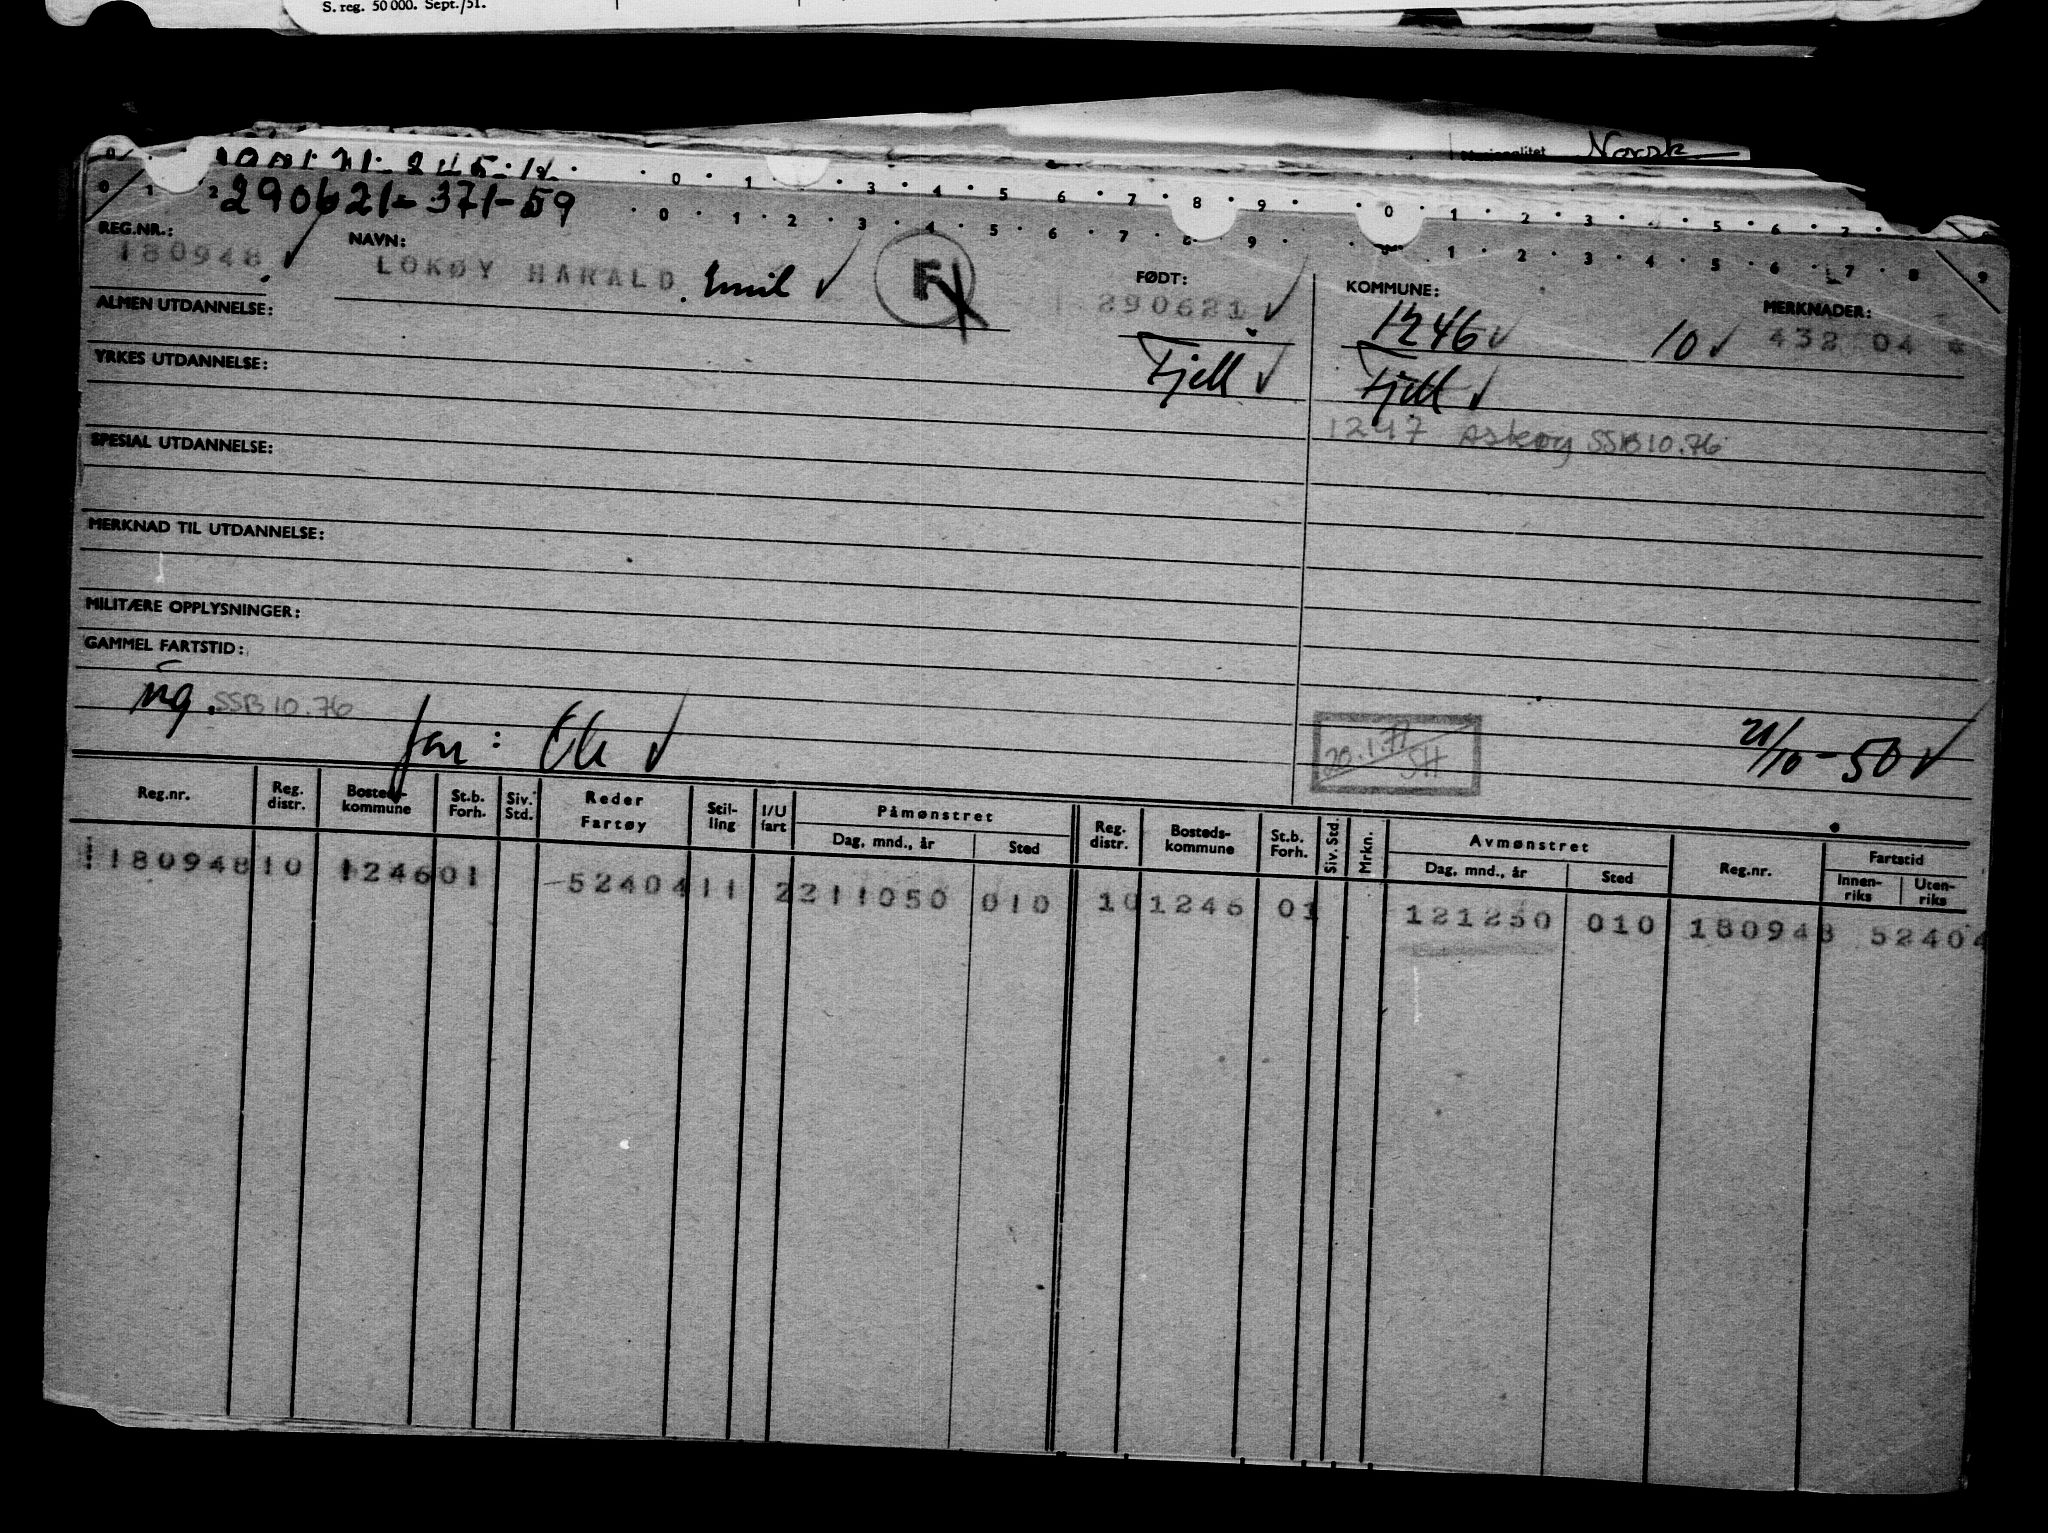 S. reg. 50 000. Sept./51.
Norsk
290621-371-59
0 1 2 3 4 5 6 7 8 9 0 1 2 3 4 5 6 7 8 9
REG.NR.: NAVN: FØDT: KOMMUNE: MERKNADER:
180948 LOKØY HARALD Emil F 290621 1246 10 432 04 *
ALMEN UTDANNELSE: Fjell Fjell
YRKES UTDANNELSE:
1247 Askøy SSB 10.76
SPESIAL UTDANNELSE:
MERKNAD TIL UTDANNELSE:
MILITÆRE OPPLYSNINGER:
GAMMEL FARTSTID:
ug. SSB 10.76
20.1.77 SH
21/10-50
Reg.nr. Reg. distr. Bosteds-kommune St.b. Forh. Siv. Std. Reder Fartøy Stil-ling I/U fart Påmønstret Dag, mnd., år Sted Reg. distr. Bosteds-kommune St.b. Forh. Siv. Std. Mrkn. Avmønstret Dag, mnd., år Sted Reg.nr. Fartstid Innen-riks Uten-riks
180948 10 1246 01 52404 11 2 211050 010 10 1246 01 121250 010 180948 52404